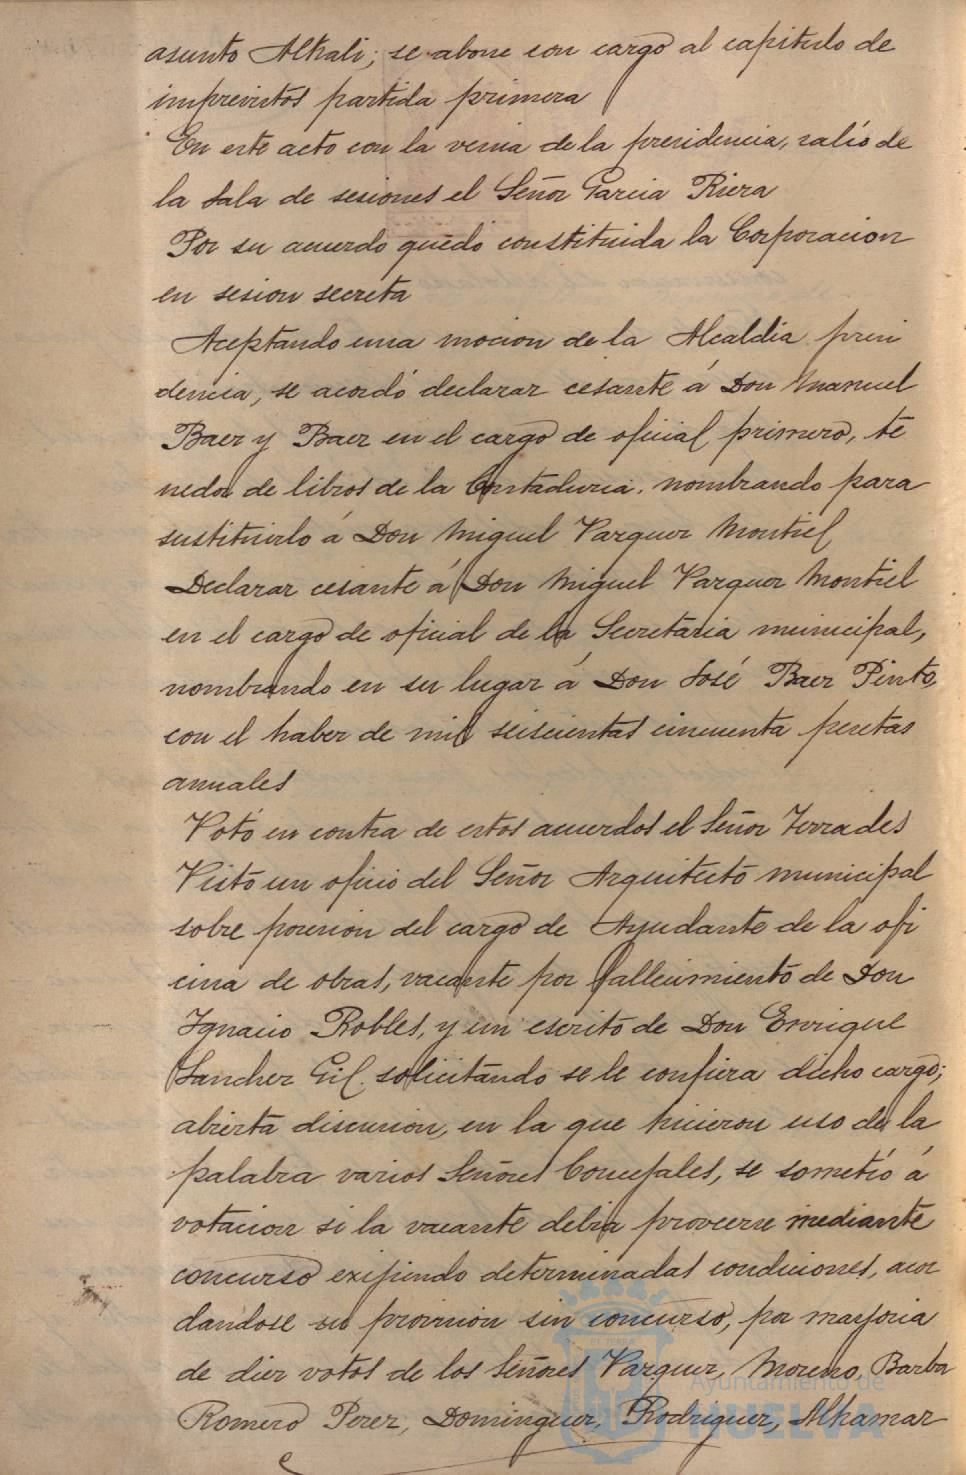 asunto Alkali; se abone con cargo al capitulo de
imprevistos partida primera
En este acto con la venia de la presidencia, salió de
la Sala de sesiones el Señor Garcia Riera
Por su acuerdo quedó constituida la Corporacion
en sesion secreta
Aceptando una mocion de la Alcaldia presi
dencia, se acordó declarar cesante á Don Manuel
Baez y Baez en el cargo de oficial primero, te
nedor de libros de la Contaduria, nombrando para
sustituirlo á Don Miguel Vazquez Montiel
Declarar cesante á Don Miguel Vazquez Montiel
en el cargo de oficial de la Secretaria municipal,
nombrando en su lugar á Don José Baez Pinto,
con el haber de mil seiscientas cincuenta pesetas
anuales
Votó en contra de estos acuerdos el Señor Terrades
Visto un oficio del Señor Arquitecto municipal
sobre posesion del cargo de Ayudante de la ofi
cina de obras, vacante por fallecimiento de Don
Ignacio Robles, y un escrito de Don Enrique
Sanchez Gil solicitando se le confiera dicho cargo;
abierta discusion, en la que hicieron uso de la
palabra varios Señores Concejales, se sometió á
votacion si la vacante debia proveerse mediante
concurso exijiendo determinadas condiciones, acor
dandose su provision sin concurso, por mayoria
de diez votos de los Señores Vazquez, Moreno, Barba
Romero Perez, Dominguez, Rodriguez, Alkamar
Ayuntamiento de
HUELVA